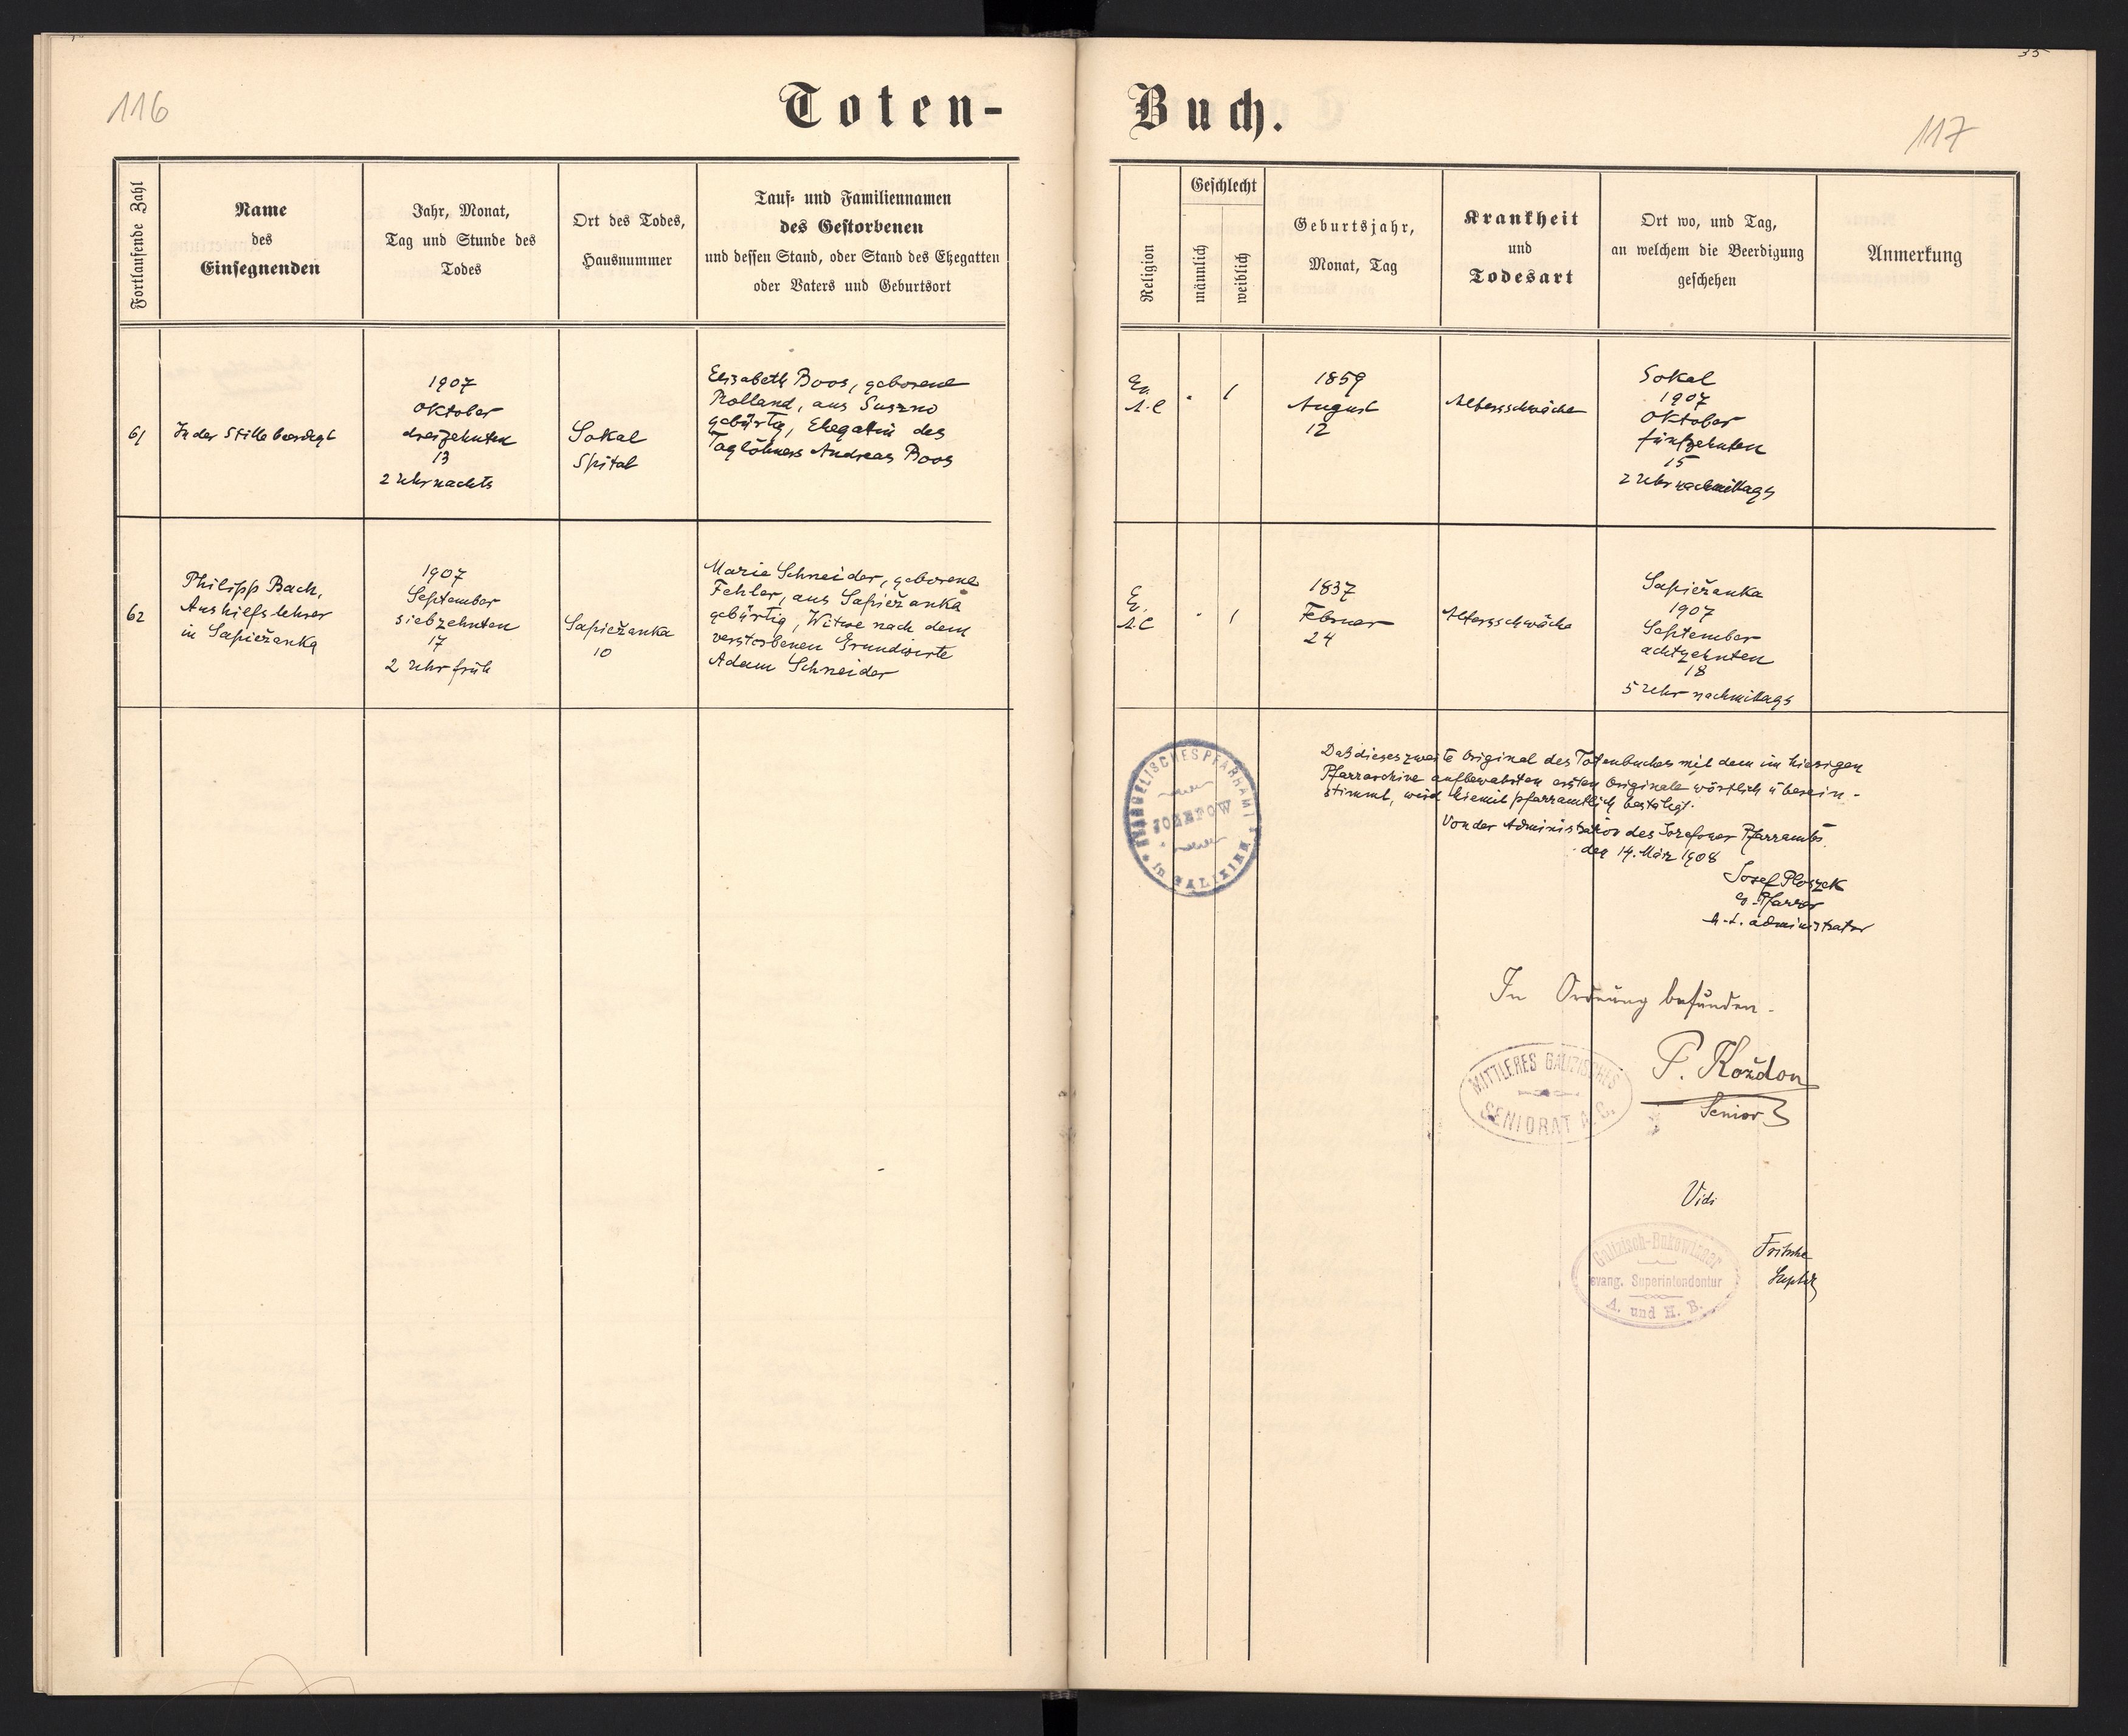 35
116
Toten-
Buch.
117
Fortlaufende Zahl
Name
des
Einsegnenden
Jahr, Monat,
Tag und Stunde des
Todes
Ort des Todes,
Hausnummer
Tauf- und Familiennamen
des Gestorbenen
und dessen Stand, oder Stand des Ehegatten
oder Vaters und Geburtsort
Religion
Geschlecht
männlich
weiblich
Geburtsjahr,
Monat, Tag
Krankheit
und
Todesart
Ort wo, und Tag,
an welchem die Beerdigung
geschehen
Anmerkung
61
In der Stille beerdigt
1907
Oktober
dreizehnten
13
2 Uhr nachts
Sokal
Spital
Elisabeth Boos, geborene
Rolland, aus Suszno
gebürtig, Ehegattin des
Taglöhners Andreas Boos
Ev.
A.C
1
1859
August
12
Altersschwäche
Sokal
1907
Oktober
fünfzehnten
15
2 Uhr nachmittags
62
Philipp Bach,
Aushilfslehrer
in Sapieżanka
1907
September
siebzehnten
17
2 Uhr früh
Sapieżanka
10
Marie Schneider, geborene
Fehler, aus Sapieżanka
gebürtig, Witwe nach dem
verstorbenen Grundwirte
Adam Schneider
Ev.
A.C
1
1837
Februar
24
Altersschwäche
Sapieżanka
1907
September
achtzehnten
18
5 Uhr nachmittags
EVANGELISCHES PFARRAMT
JOZEFOW
in GALIZIEN
Daß dieses zweite Original des Totenbuches mit dem im hiesigen
Pfarrarchive aufbewahrten ersten Originale wörtlich überein-
stimmt, wird hiemit pfarramtlich bestätigt.
Von der Administration des Josefower Pfarramts
den 14. März 1908
Josef Ploszek
ev. Pfarrer
Administrator
In Ordnung befunden.
MITTLERES GALIZISCHES
SENIORAT A.C.
P. Kożdon
Senior
Vidi
Galizisch-Bukowinaer
evang. Superintendentur
A. und H. B.
Fritsche
Suptdt